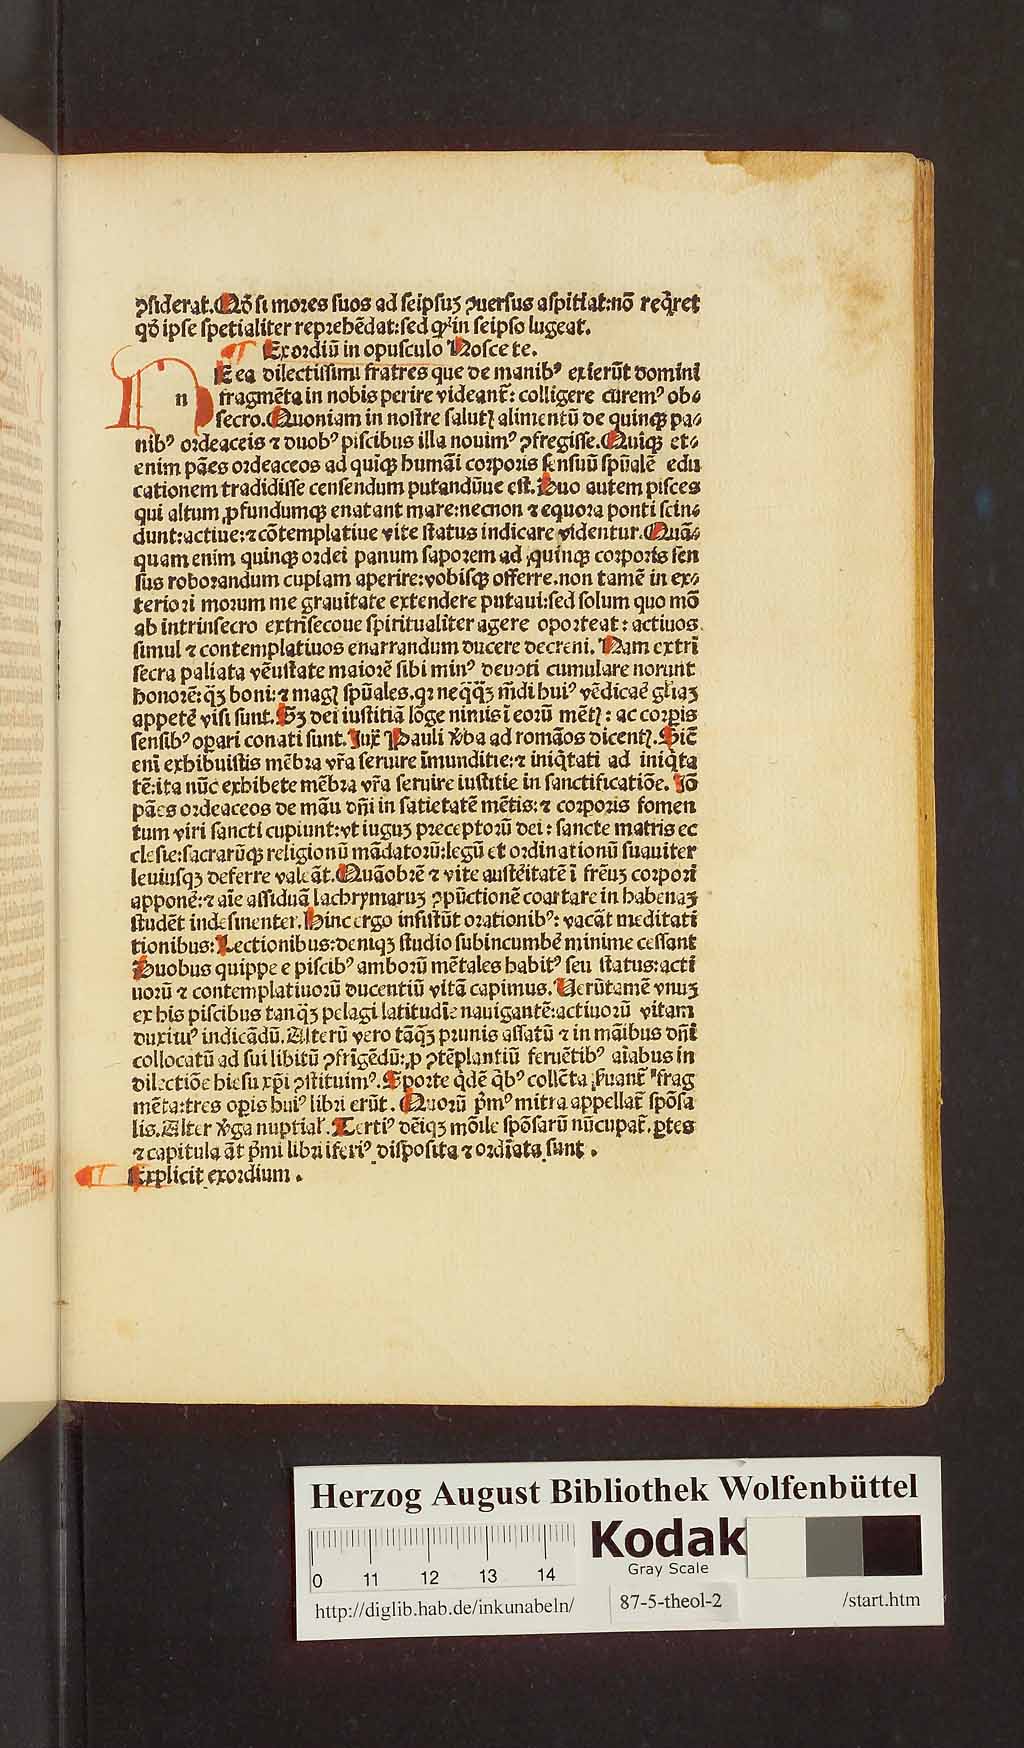 ꝯsiderat. Qō si mores suos ad seipsuʒ ꝯuersus aspitiat: nō req̄ret
qō ipse spetialiter reprehēdat: sed qꝛ in seipso lugeat.
Exordiū in opusculo Nosce te.
NE ea dilectissimi fratres que de manibꝰ exierūt domini
fragmēta in nobis perire videant̄: colligere cūremꝰ ob⸗
secro. Quoniam in nostre salutꝭ alimentū de quinqꝫ pa⸗
nibꝰ ordeaceis ⁊ duobꝰ piscibus illa nouimꝰ ꝯfregisse. Quiqꝫ et⸗
enim pāes ordeaceos ad quiqꝫ humāi corporis sensuū spūalē edu
cationem tradidisse censendum putandūue est. Duo autem pisces
qui altum ꝓfundumqꝫ enatant mare: necnon ⁊ equora ponti scin⸗
dunt: actiue: ⁊ cōtemplatiue vite status indicare videntur. Quā⸗
quam enim quinqꝫ ordei panum saporem ad quinqꝫ corporis sen
sus roborandum cupiam aperire: vobisqꝫ offerre. non tamē in ex⸗
teriori morum me grauitate extendere putaui: sed solum quo mō
ab intrinsecro extrīsecoue spiritualiter agere oporteat: actiuos
simul ⁊ contemplatiuos enarrandum ducere decreui. Nam extrī
secra paliata vēustate maiorē sibi minꝰ deuoti cumulare norunt
honorē: qʒ boni: ⁊ magꝭ spūales. qꝛ neq̄q̄ʒ mūdi huiꝰ vēdicaē gl̄iaʒ
appetē visi sunt. Sʒ dei iustitiā lōge nimis ī eorū mētꝭ: ac corꝑis
sensibꝰ opari conati sunt. Iux̄ Pauli v̄ba ad romāos dicentꝭ. Sic̄
enī exhibuistis mēbra vr̄a seruire īmunditie: ⁊ iniq̄tati ad iniq̄ta
tē: ita nūc exhibete mēbra vr̄a seruire iustitie in sanctificatiōe. Iō
pāes ordeaceos de māu dn̄i in satietatē mētis: ⁊ corporis fomen
tum viri sancti cupiunt: vt iuguʒ preceptorū dei: sancte matris ec
clesie: sacrarūqꝫ religionū mādatorū: legū et ordinationū suauiter
leuiusqʒ deferre valeāt. Quāobrē ⁊ vite austēitatē ī frēuʒ corpori
apponē: ⁊ aīe assiduā lachrymaruʒ ꝯpūctionē coartare in habenaʒ
studēt indesinenter. Hinc ergo insistūt orationibꝰ: vacāt meditati
tionibus: Lectionibus: deniqʒ studio subincumbē minime cessant
Duobus quippe e piscibꝰ amborū mētales habitꝰ seu status: acti
uorū ⁊ contemplatiuorū ducentiū vitā capimus. Uerūtamē vnuʒ
ex his piscibus tanq̄ʒ pelagi latitudīe nauigantē: actiuorū vitam
duximꝰ indicādū. Alterū vero tāq̄ʒ prunis assatū ⁊ in māibus dn̄i
collocatū ad sui libitū ꝯfrigēdū: ꝓ ꝯtēplantiū feruētibꝰ aīabus in
dilectiōe hiesu xp̄i ꝯstituimꝰ. Sporte q̄dē q̄bꝰ collēta ẜuant̄ frag
mēta: tres oꝑis huiꝰ libri erūt. Quorū p̄mꝰ mitra appellat̄ spōsa
lis. Alter v̄ga nuptial̄. Tertiꝰ dēiqʒ mōile spōsarū nūcupat̄. ꝑtes
⁊ capitula āt p̄mi libri iferiꝰ disposita ⁊ ordīata sunt .
Explicit exordium .
Herzog August Bibliothek Wolfenbüttel
Kodak
Gray Scale
0 11 12 13 14
http://diglib.hab.de/inkunabeln/ 87-5-theol-2 /start.htm